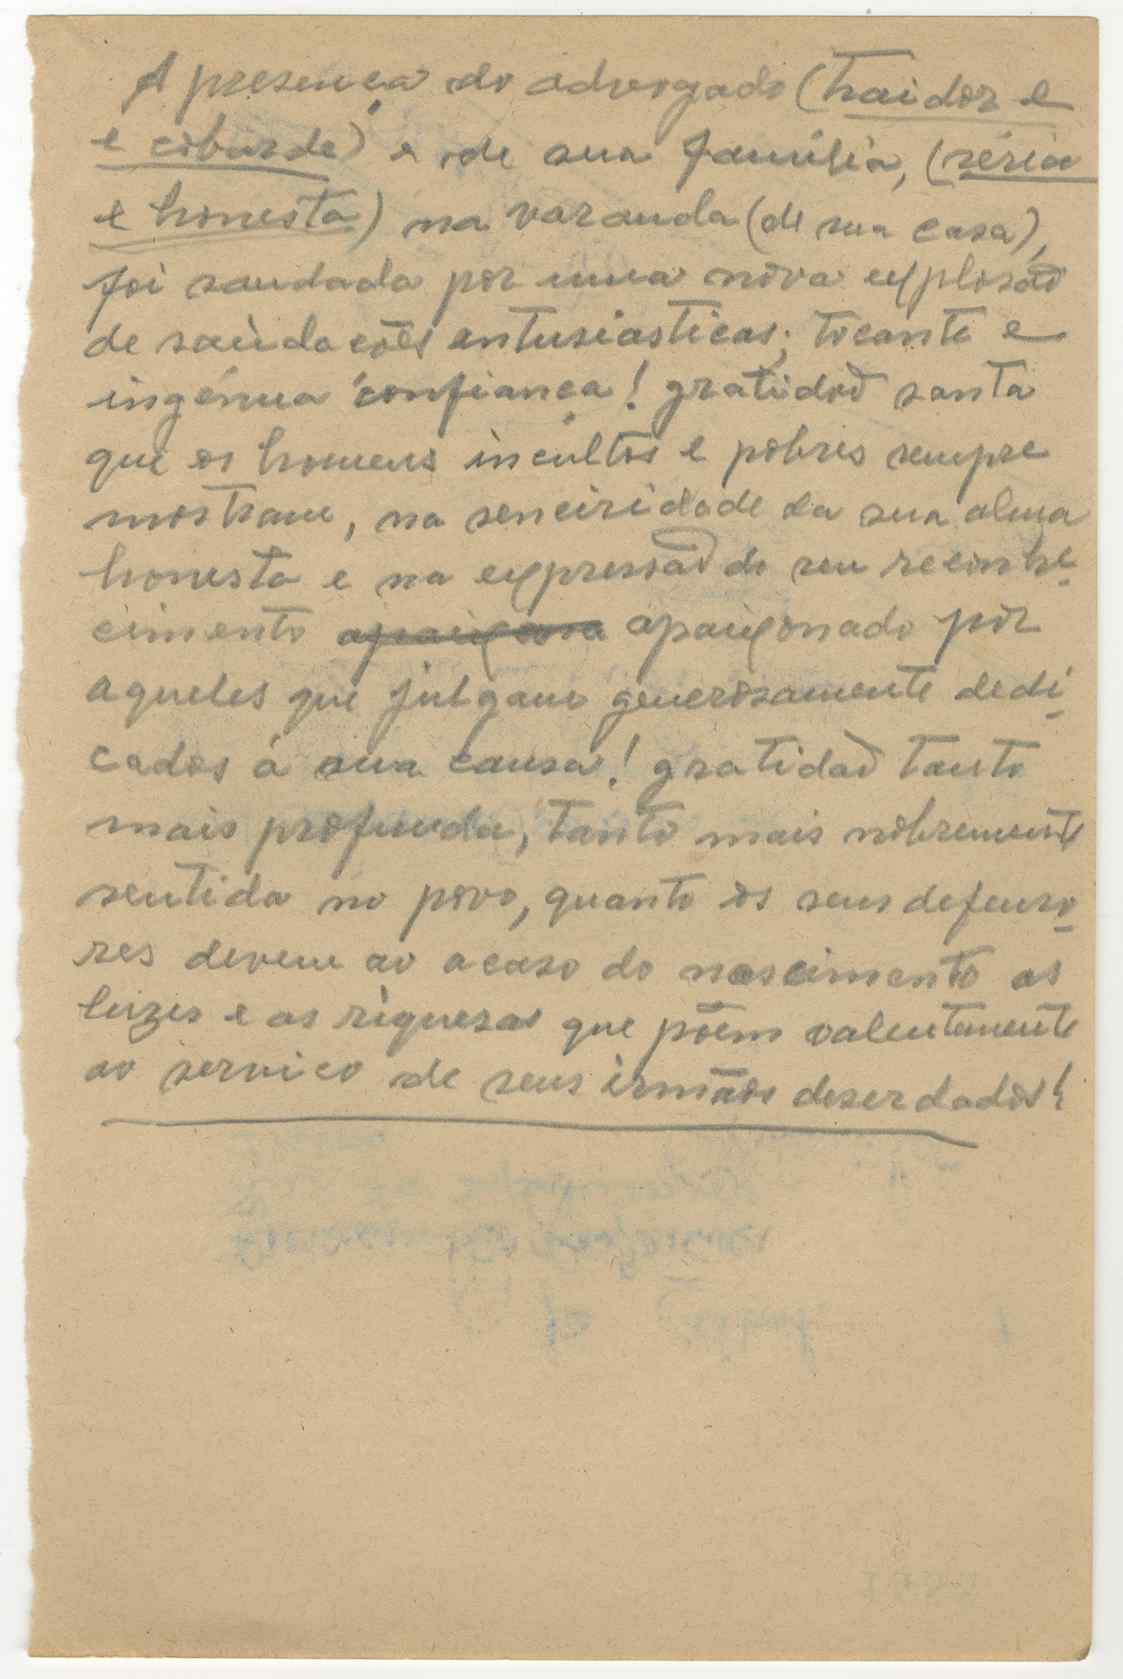 A presença do advogado (traidor e
e cobarde) e de sua família, (séria
e honesta) na varanda (de sua casa),
foi saudada por uma nova explosão
de saùdações entusiasticas; tocante e
ingénua confiança! gratidão santa
que os homens incultos e pobres sempre
mostram, na senciridade da sua alma
honesta e na expressão do seu reconhe-
cimento apaixona apaixonado por
aqueles que julgam generosamente dedi-
cados á sua causa! gratidão tanto
mais profunda, tanto mais nobremente
sentida no povo, quanto os seus defenso-
res devem ao acaso do nascimento as
luzes e as riquesas que põem valentemente
ao serviço de seus irmãos deserdados!